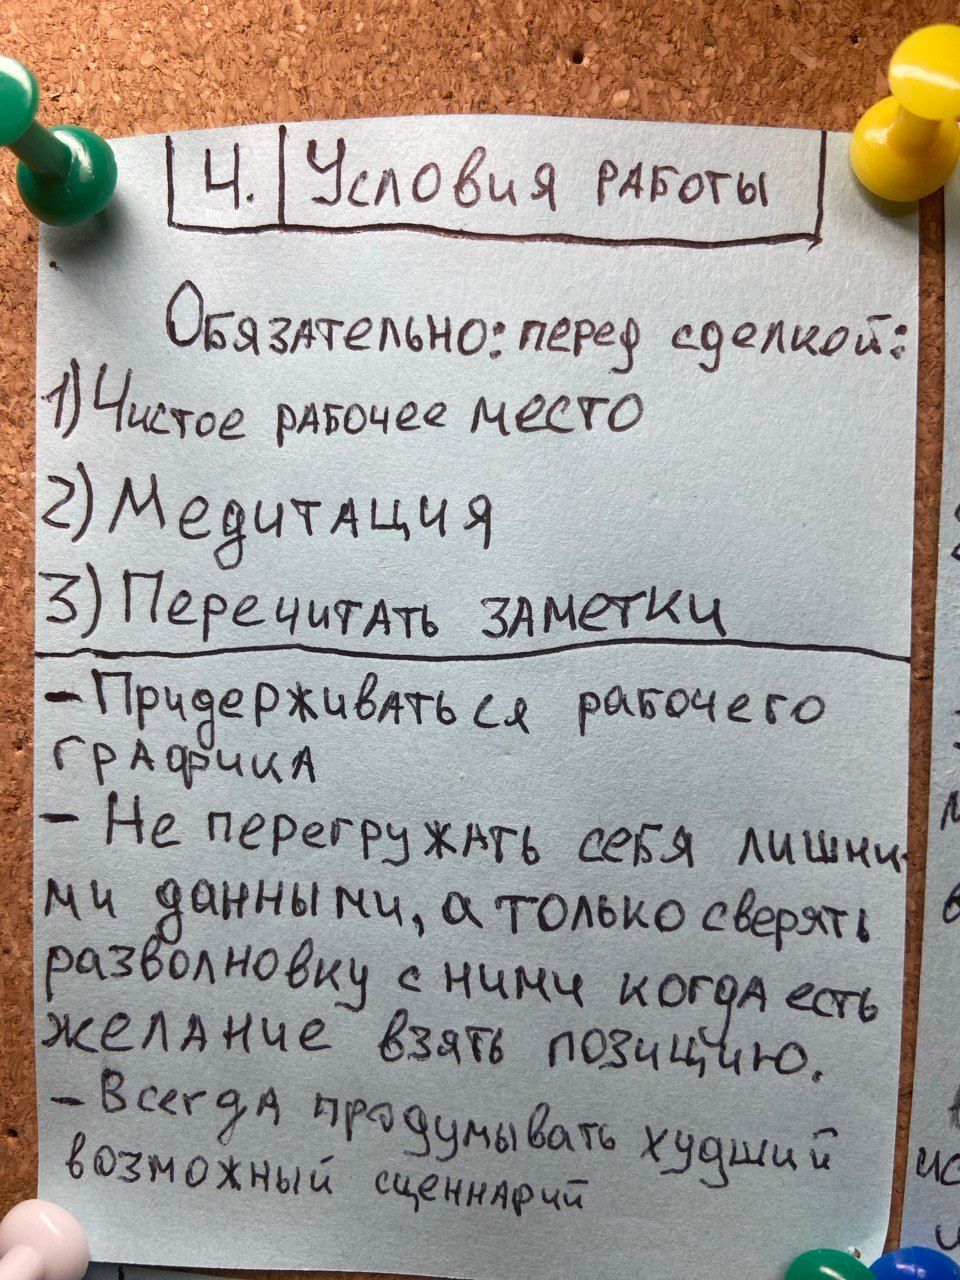 4. Условия работы
Обязательно: перед сделкой:
1) Чистое рабочее место
2) Медитация
3) Перечитать заметки
- Придерживаться рабочего
графика
- Не перегружать себя лишни-
ми данными, а только сверять
разволновку с ними когда есть
желание взять позицию.
- Всегда продумывать худший
возможный сценнарий